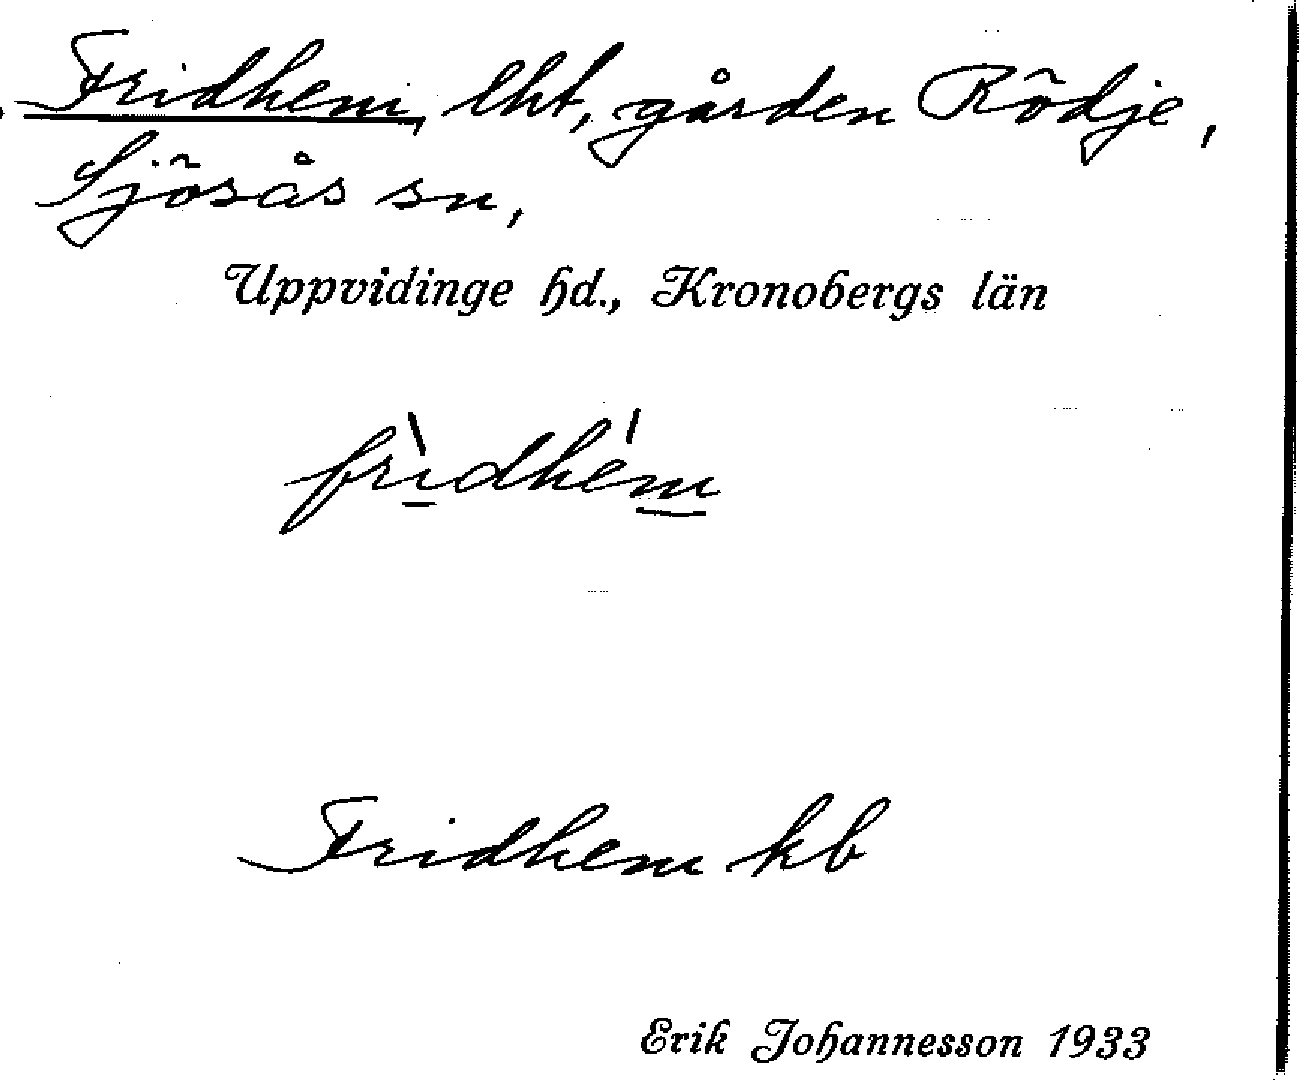 Fridhem, lht, gården Rödje,
Sjösås sn,
Uppvidinge hd., Kronobergs län
frìdhém
Fridhem kb
Erik Johannesson 1933